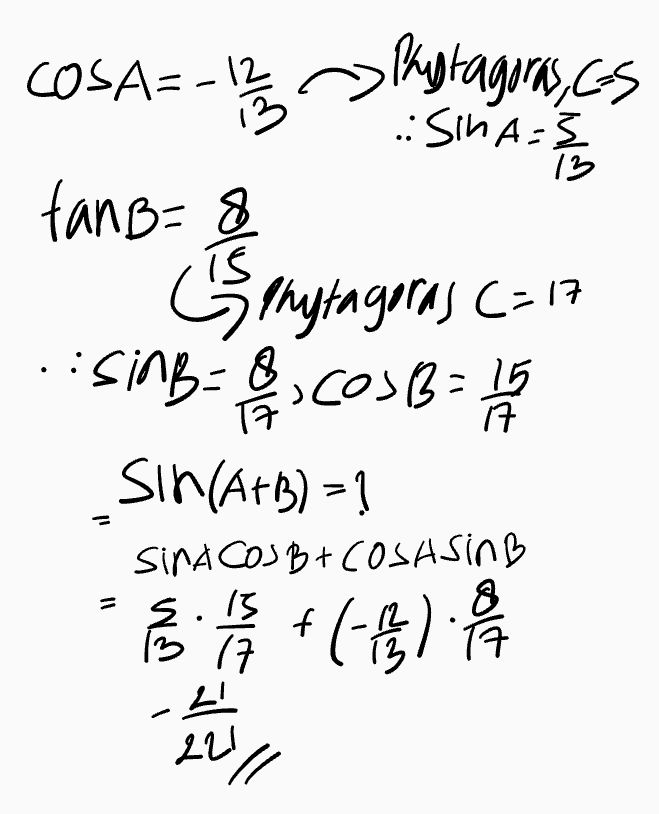 cosA = -12/13 → Phytagoras, C=5
∴ sin A = 5/13
tanB = 8/15
↪ Phytagoras C = 17
∴ sinB = 8/17, cosB = 15/17
sin(A+B) = ?
=
sinA cosB + cosA sinB
= 5/13 · 15/17 + (-12/13) · 8/17
-21/221 //